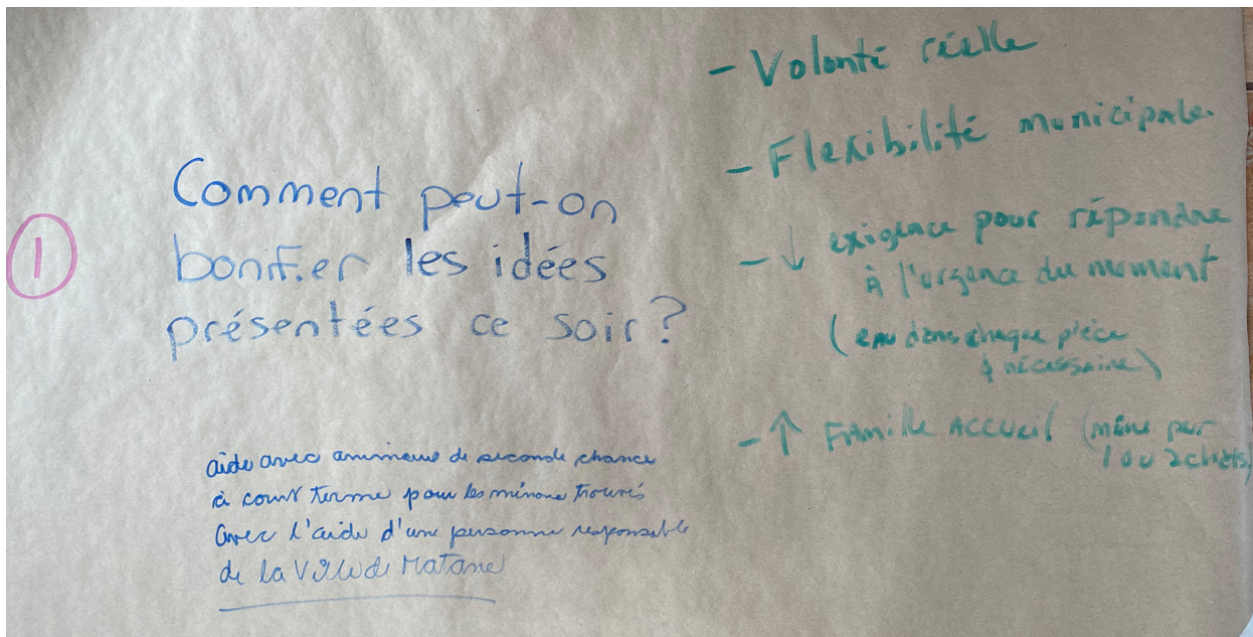 1
Comment peut-on
bonifier les idées
présentées ce soir?
aide avec animaux de seconde chance
à court terme pour les minous trouvés
avec l'aide d'une personne responsable
de la Ville de Matane
- Volonté réelle
- Flexibilité municipale.
- ↓ exigence pour répondre
à l'urgence du moment
(eau dans chaque pièce
nécessaire)
- ↑ Famille Accueil (même pour
1 ou 2 chats)